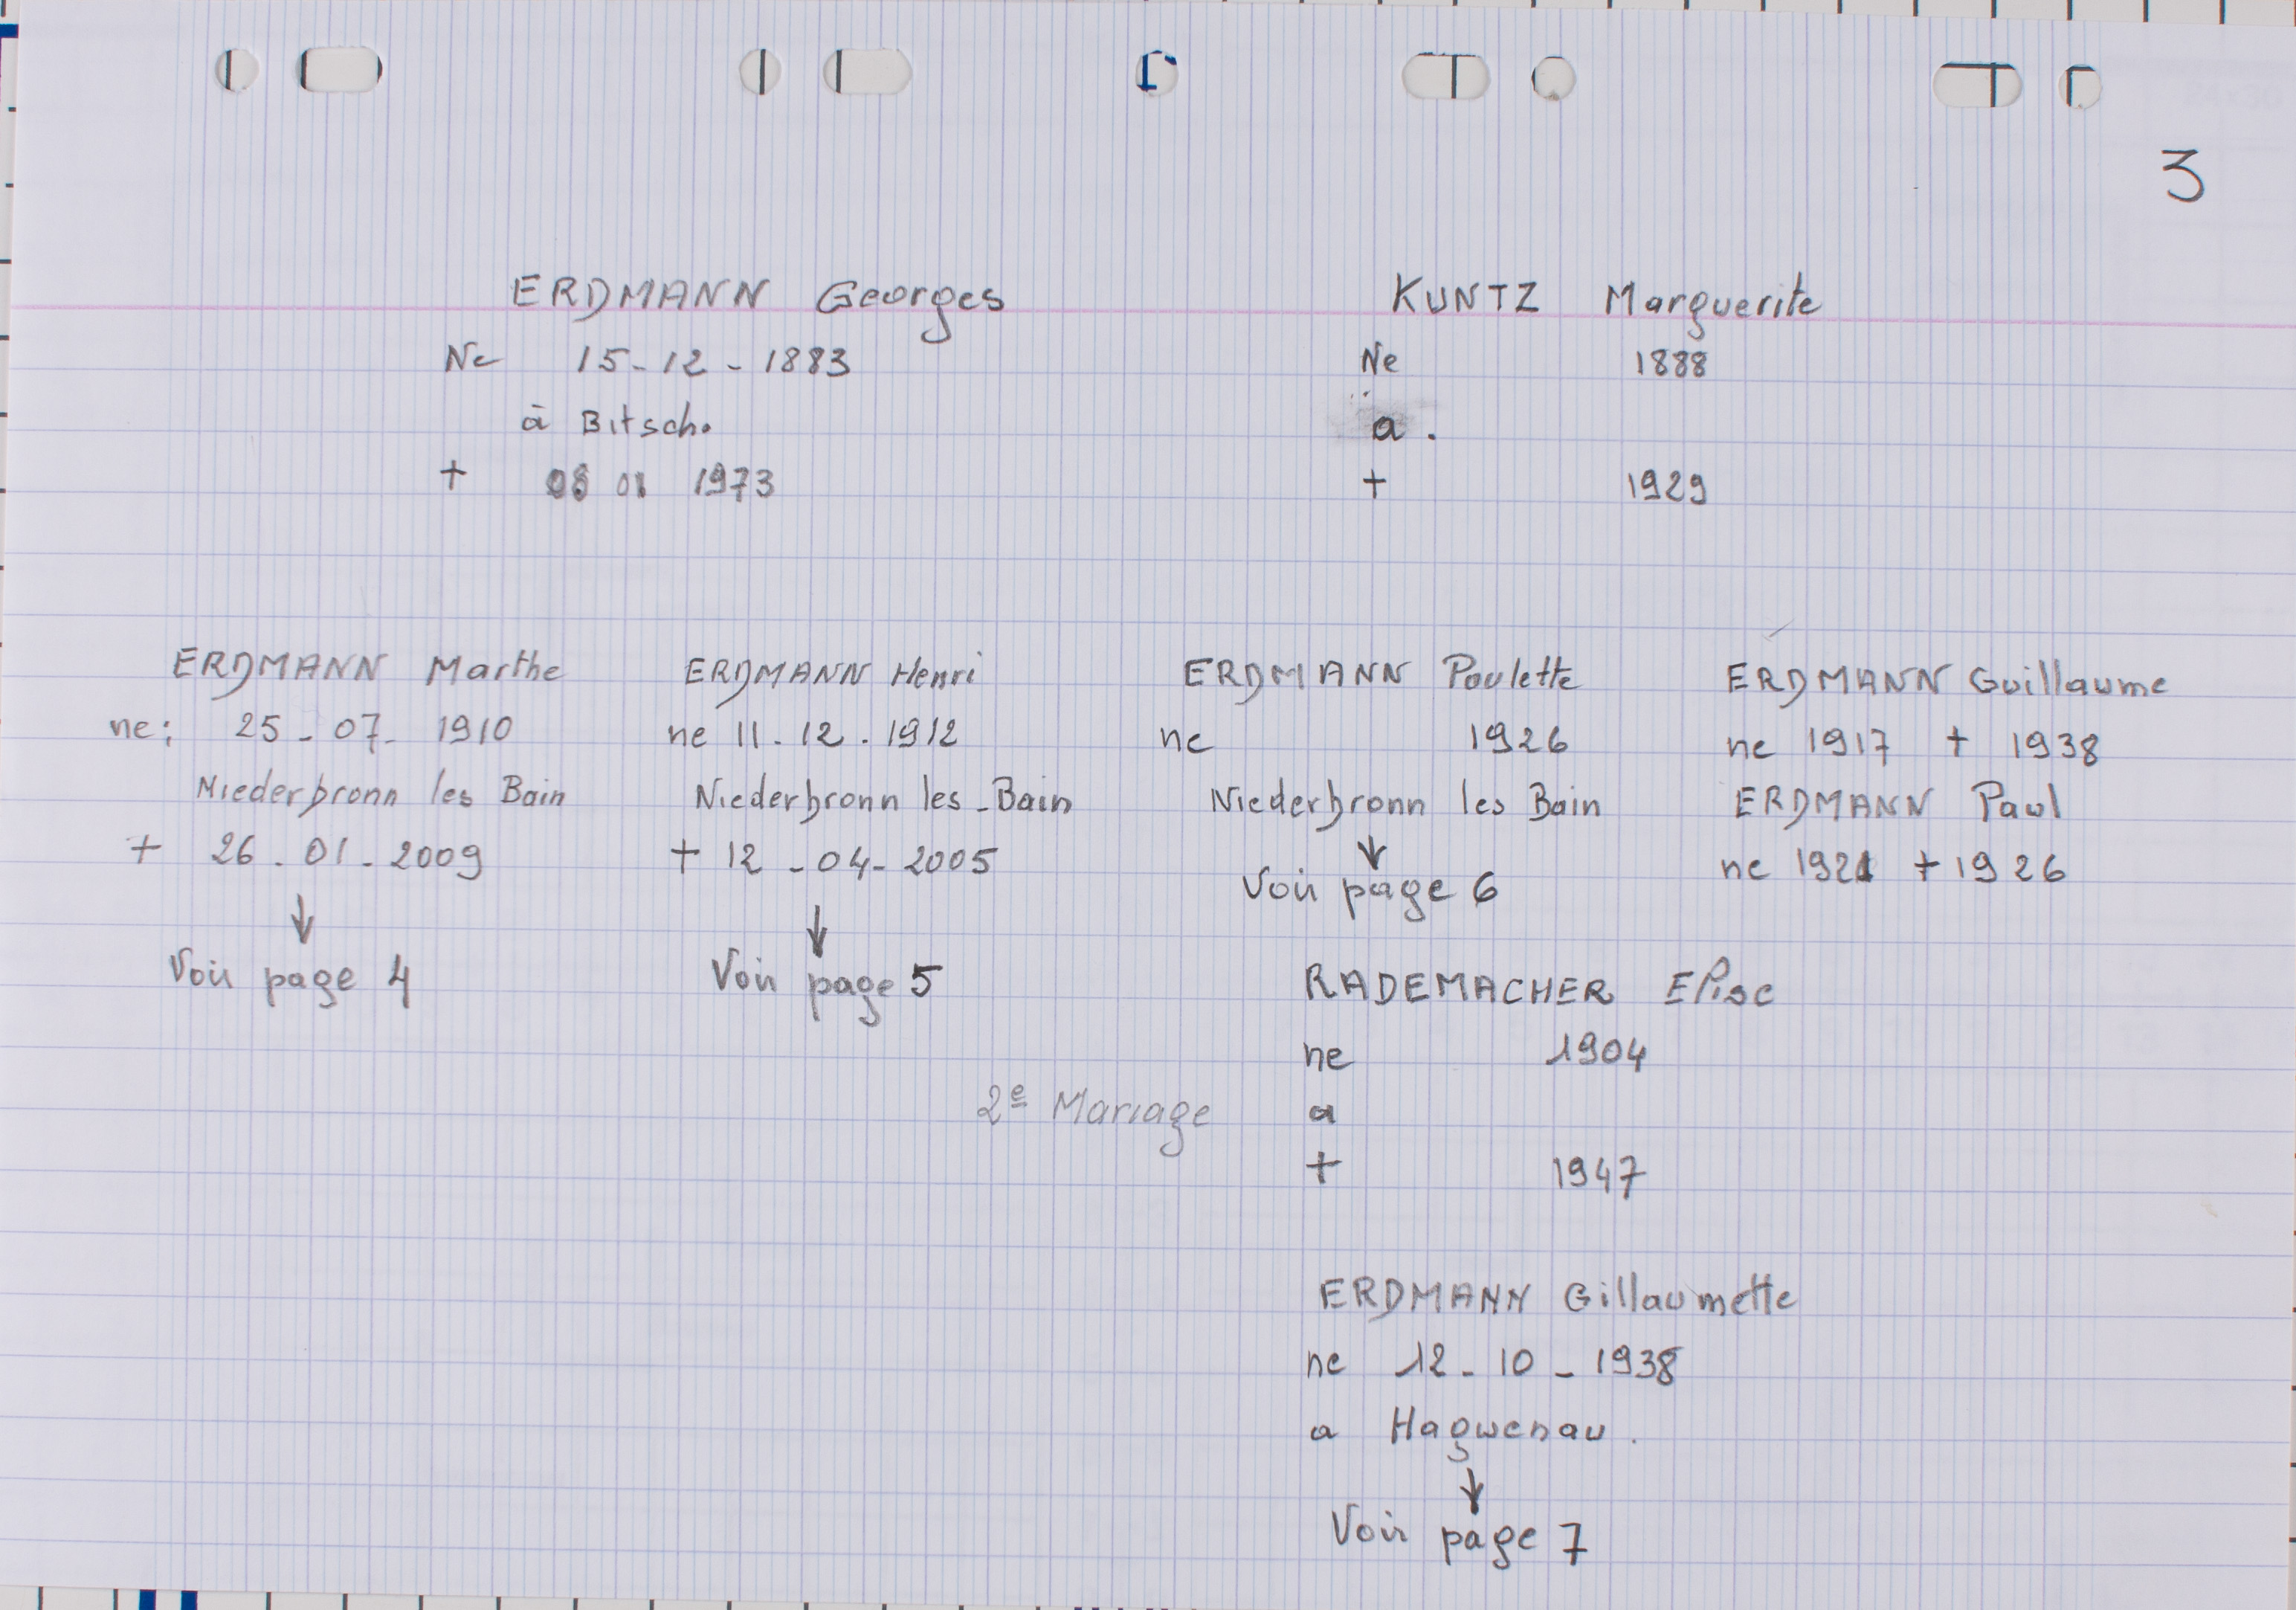 3
ERDMANN Georges
Ne 15-12-1883
à Bitsch.
+ 08 01 1973
KUNTZ Marguerite
Ne 1888
a.
+ 1929
ERDMANN Marthe
ne: 25-07-1910
Niederbronn les Bain
+ 26-01-2009
↓
Voir page 4
ERDMANN Henri
ne 11.12.1912
Niederbronn les-Bain
+ 12-04-2005
↓
Voir page 5
ERDMANN Poulette
ne 1926
Niederbronn les Bain
↓
Voir page 6
ERDMANN Guillaume
ne 1917 + 1938
ERDMANN Paul
ne 1921 + 1926
2e Mariage
RADEMACHER Elise
ne 1904
a
+ 1947
ERDMANN Gillaumette
ne 12-10-1938
a Haguenau.
↓
Voir page 7